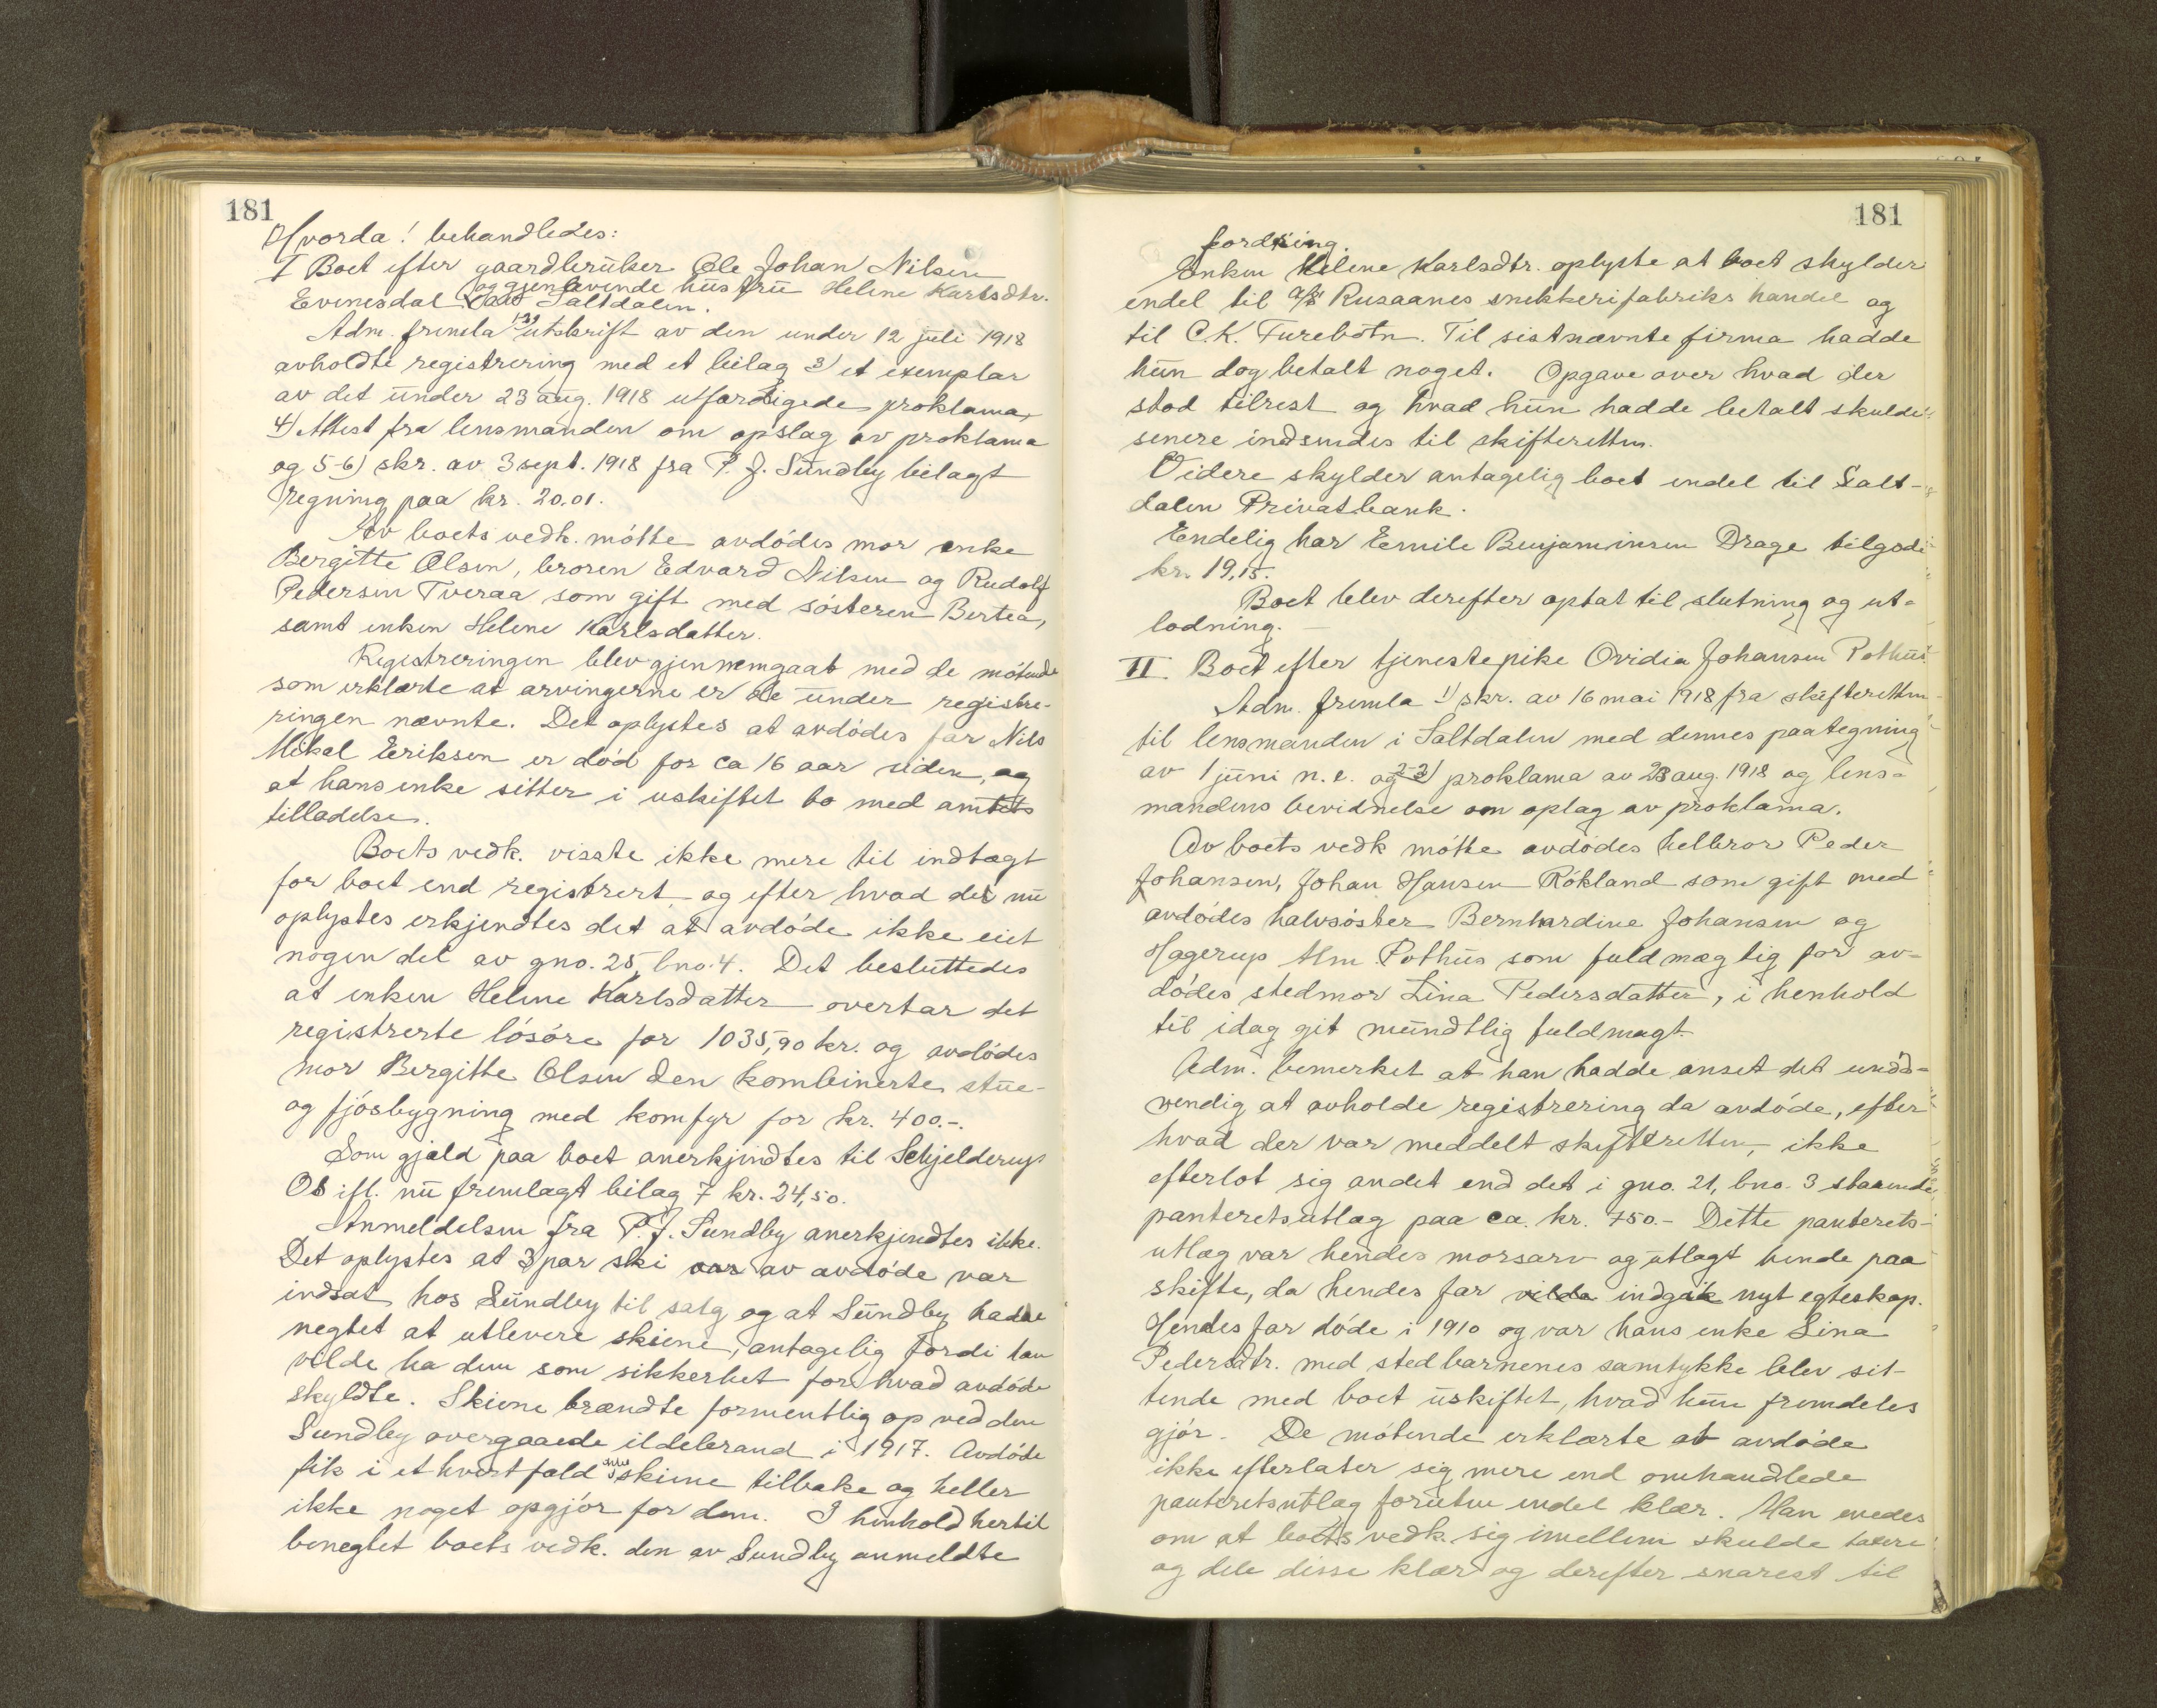 181
Hvorda! behandledes:
I Boet efter gaardbruker Ole Johan Nilsen
og gjenlevende hustru Helene Karlsdtr.
Evenesdal i Saltdalen.
Adm. fremla 1-2) utskrift av den under 12 juli 1918
avholdte registrering med et bilag 3) et exemplar
av det under 23 aug. 1918 utfærdigede proklama,
4) Attest fra lensmanden om opslag av proklama
og 5-6) skr. av 3 sept. 1918 fra P. J. Sundby bilagt
regning paa kr. 20,01.
Av boets vedk. møtte avdødes mor enke
Bergitte Olsen, broren Edvard Nilsen og Rudolf
Pedersen Tveraa som gift med søsteren Bertea,
samt enken Helene Karlsdatter.
Registreringen blev gjennemgaat med de møtende
som erklærte at arvingerne er de under registre-
ringen nævnte. Det oplystes at avdødes far Nils
Mikal Eriksen er død for ca 16 aar siden, og
at hans enke sitter i uskiftet bo med amtets
tilladelse.
Boets vedk. visste ikke mere til indtægt
for boet end registrert og efter hvad det nu
oplystes erkjendtes det at avdøde ikke eiet
nogen del av gno. 25, bno. 4. Det besluttedes
at enken Helene Karlsdatter overtar det
registrerte løsøre for 1035,90 kr. og avdødes
mor Bergitte Olsen den kombinerte stue-
og fjøsbygning med komfyr for kr. 400.-.
Som gjæld paa boet anerkjendtes til Schjelderup
Os ifl. nu fremlagt bilag 7 kr. 24,50.
Anmeldelsen fra P. J. Sundby anerkjendtes ikke.
Det oplystes at 3 par ski av avdøde var
indsat hos Sundby til salg og at Sundby hadde
negtet at utlevere skiene, antagelig fordi han
vilde ha dem som sikkerhet for hvad avdøde
skyldte. Skiene brændte formentlig op ved den
Sundby overgaaede ildebrand i 1917. Avdøde
fik i ethvert fald ikke skiene tilbake og heller
ikke noget opgjør for dem. I henhold hertil
benegtet boets vedk. den av Sundby anmeldte
181
fordring.
Enken Helene Karlsdtr. oplyste at boet skylder
endel til A/S Rusaanes snekkerifabriks handel og
til C. K. Furebotn. Til sistnævnte firma hadde
hun dog betalt noget. Opgave over hvad der
stod tilrest og hvad hun hadde betalt skulde
senere indsendes til skifteretten.
Videre skylder antagelig boet endel til Salt-
dalen Privatbank.
Endelig har Eemile Benjaminsen Drage tilgode
kr. 19,15.
Boet blev derefter optat til slutning og ut-
lodning.
II. Boet efter tjenestepike Ovidia Johansen Pothus
Adm. fremla 1) skr. av 16 mai 1918 fra skifteretten
til lensmanden i Saltdalen med dennes paategning
av 1 juni n. e. og 2-3) proklama av 23 aug. 1918 og lens-
mandens bevidnelse om oplag av proklama.
Av boets vedk møtte avdødes helbror Peder
Johansen, Johan Hansen Røkland som gift med
avdødes halvsøster Bernhardine Johansen og
Hagerup Alm Pothus som fuldmægtig for av-
dødes stedmor Lina Pedersdatter, i henhold
til idag git mundtlig fuldmagt.
Adm. bemerket at han hadde anset det unød-
vendig at avholde registrering da avdøde, efter
hvad der var meddelt skifteretten, ikke
efterlot sig andet end det i gno. 21, bno. 3 staaende
panteretsutlæg paa ca. kr. 750.- Dette panterets-
utlæg var hendes morsarv og utlagt hende paa
skifte, da hendes far vilde indgik nyt egteskap.
Hendes far døde i 1910 og var hans enke Lina
Pedersdtr. med stedbarnenes samtykke blev sit-
tende med boet uskiftet, hvad hun fremdeles
gjør. De møtende erklærte at avdøde
ikke efterlater sig mere end omhandlede
panteretsutlæg foruten endel klær. Man enedes
om at boets vedk. sig imellem skulde taxere
og dele disse klær og derefter snarest til